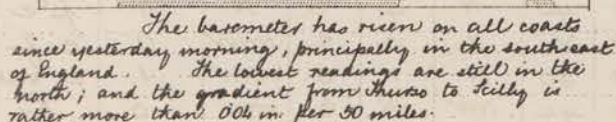 The barometer has risen on all coasts
since yesterday morning, principally in the south east
of England. The lowest readings are still in the
north; and the gradient from Thurso to Scilly is
rather more than 0.04 in. per 50 miles.